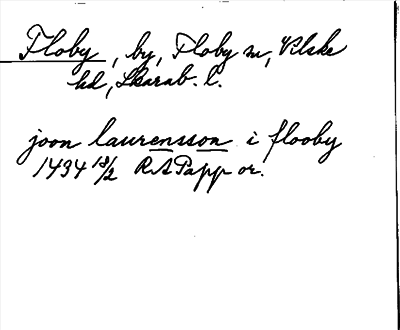 Floby, by, Floby sn, Vilske
hd, Skarab. l.
joon laurensson i flooby
1494 18/2 RAPapp or.